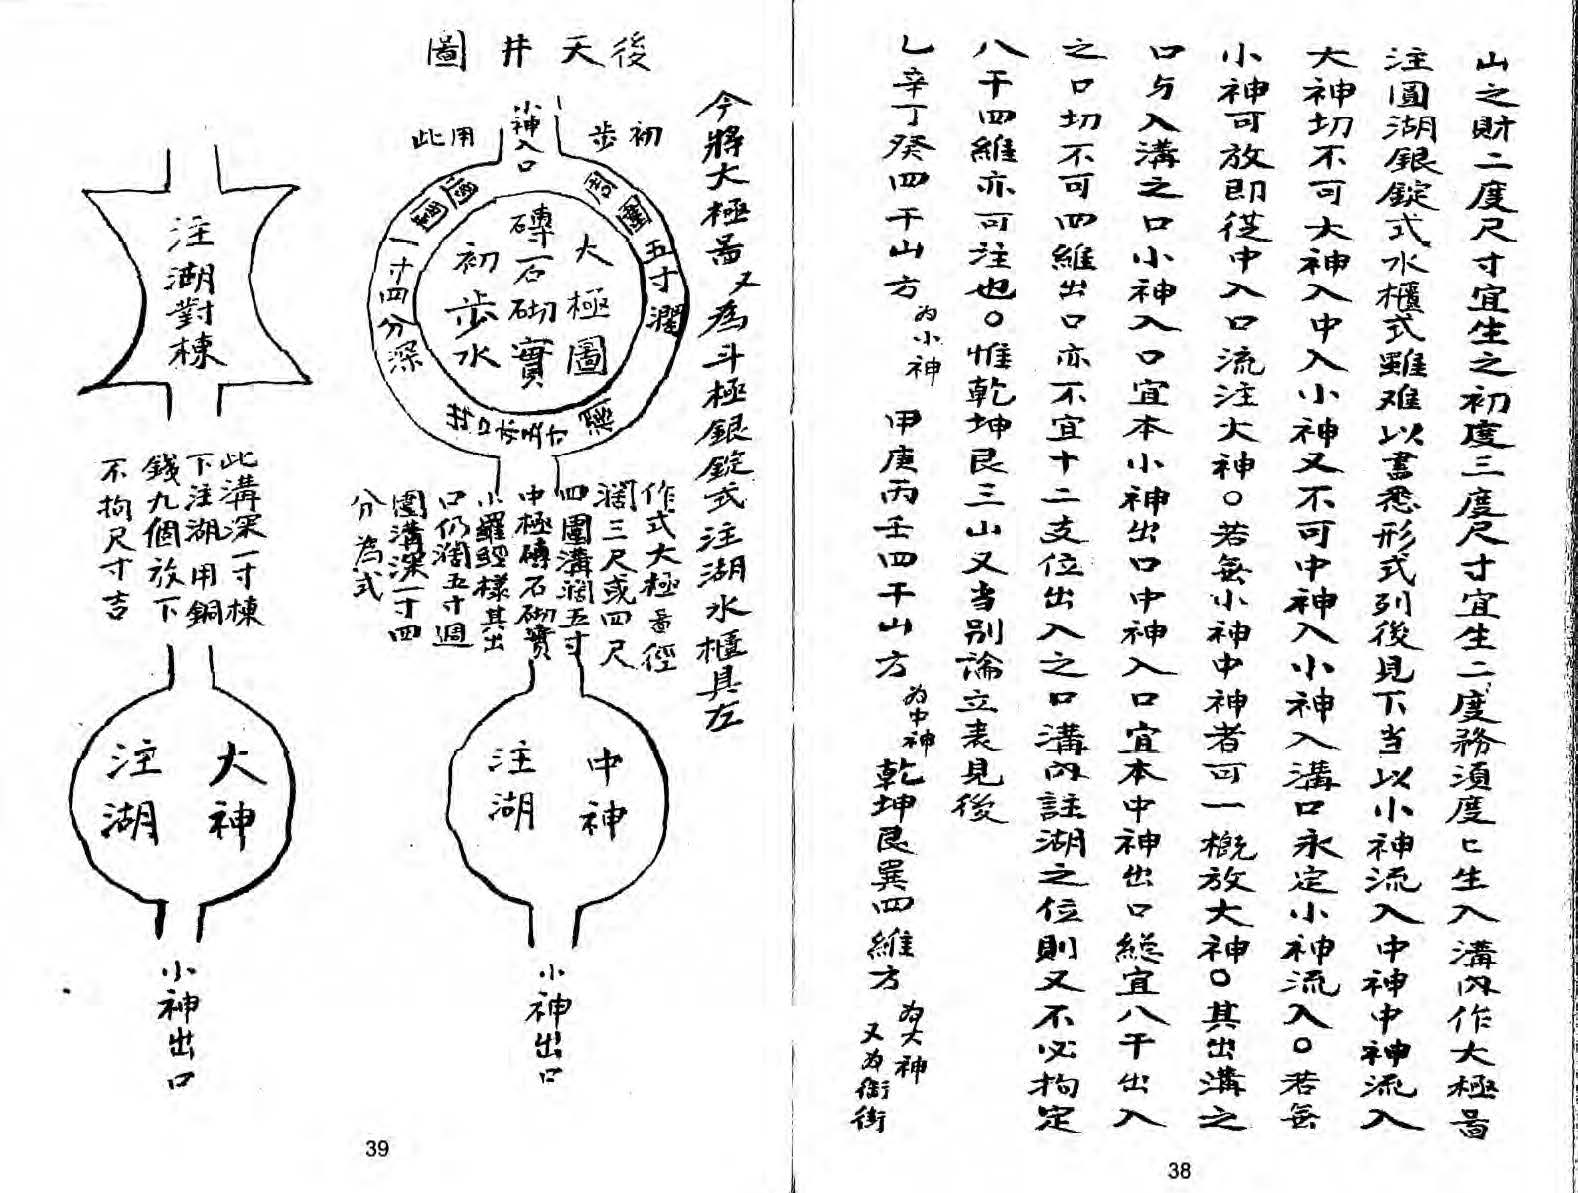 山之財二度尺寸宜生之初度三度尺寸宜生二度務須度匕生入溝內作大極畐
注圓湖銀錠式水櫃式雖难以畫悉形式列後見下当以小神流入中神中神流入
大神切不可大神入中入小神又不可中神入小神入溝口永定小神流入。若無
小神可放即從中入口流注大神。若無小神中神者可一概放大神。其出溝之
口与入溝之口小神入口宜本小神出口中神入口宜本中神出口總宜八干出入
之口切不可四維出口亦不宜十二支位出入之口溝內註湖之位則又不必拘定
八干四維亦可注也。惟乾坤艮三山又当别論立表見後
乙辛丁癸四干山方為小神 甲庚丙壬四干山方為中神 乾坤艮巽四維方為大神又為街街
38
後天井圖
今將大極畐又為斗極銀錠式注湖水櫃具左
初步
用此
小神入口
五寸濶
一寸四分深
大極圖
磚石砌實
初步水
作式大極畐徑
濶三尺或四尺
四圍溝濶五寸
中極磚石砌實
小羅經樣其出
口仍濶五寸週
圍溝深一寸四
分為式
中神
注湖
小神出口
注湖對棟
此溝深一寸棟
下注湖用銅
錢九個放下
不拘尺寸吉
大神
注湖
小神出口
39